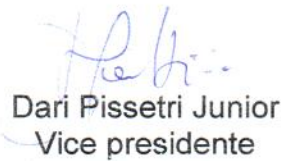 Dari Pissetri Junior
Vice presidente